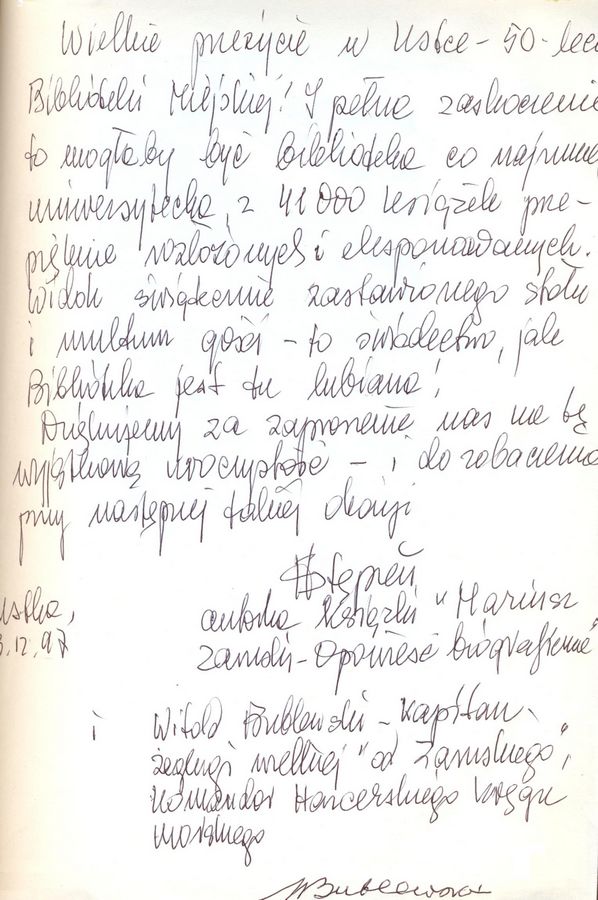 Wielkie przeżycie w Ustce - 50-leci
Biblioteki Miejskiej! I pełne zaskoczenie
to mogłaby być biblioteka co najmniej
uniwersytecka, z 41 000 książek prze-
pięknie rozłożonych i eksponowanych.
Widok świątecznie zastawionego stołu
i multum gości - to świadectwo, jak
Biblioteka jest tu lubiana!
Dziękujemy za zaproszenie nas na tę
wyjątkową uroczystość - i do zobaczenia
przy następnej takiej okazji
Stępień
Ustka,
3.12.97
autorka książki "Mariusz
Zaruski - Opowieść biograficzna"
i Witold Bublewski - kapitan
żeglugi wielkiej "od Zaruskiego",
komandor Harcerskiego Kręgu
morskiego
WBublewski